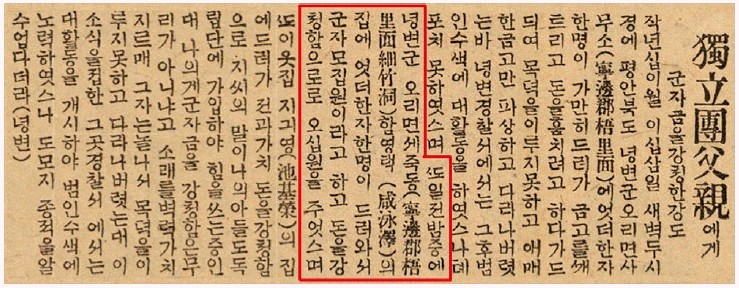 獨立團父親에게
군자금을강청한강도
작년십이월 이십삼일 새벽두시
경에 평안북도 녕변군오리면사
무소(寧邊郡梧里面)에엇더한자
한명이 가만히드러가 금고를깨
트리고 돈을훔치려고 하다가드
듸여 목뎍을이루지못하고 애매
한금고만 파상하고 다라나버렷
는바 녕변경찰서에서는 그후범
인수색에 대활동을 하엿스나 데
포치 못하엿스며 또일전밤중에
녕변군 오리면세죽동(寧邊郡梧
里面細竹洞)함영택(咸泳澤)의
집에 엇더한자한명이 드러와서
군자모집원이라고 하고 돈을강
청함으로로 오십원을 주엇스며
또이웃집 지긔영(池基榮)의 집
에드러가 전과가치 돈을강청함
으로 지씨의 말이나의아들도독
립단에 가입하야 힘을쓰는중인
대 나의게군자금을 강청함은무
리가 아니냐고 소래를벽력가치
지르매 그자는놀나서 목뎍을이
루지못하고 다라나버렷는대 이
소식을접한 그곳경찰서 에서는
대활동을 개시하야 범인수색에
노력하엿스나 도모지 종적을알
수업다더라(녕변)